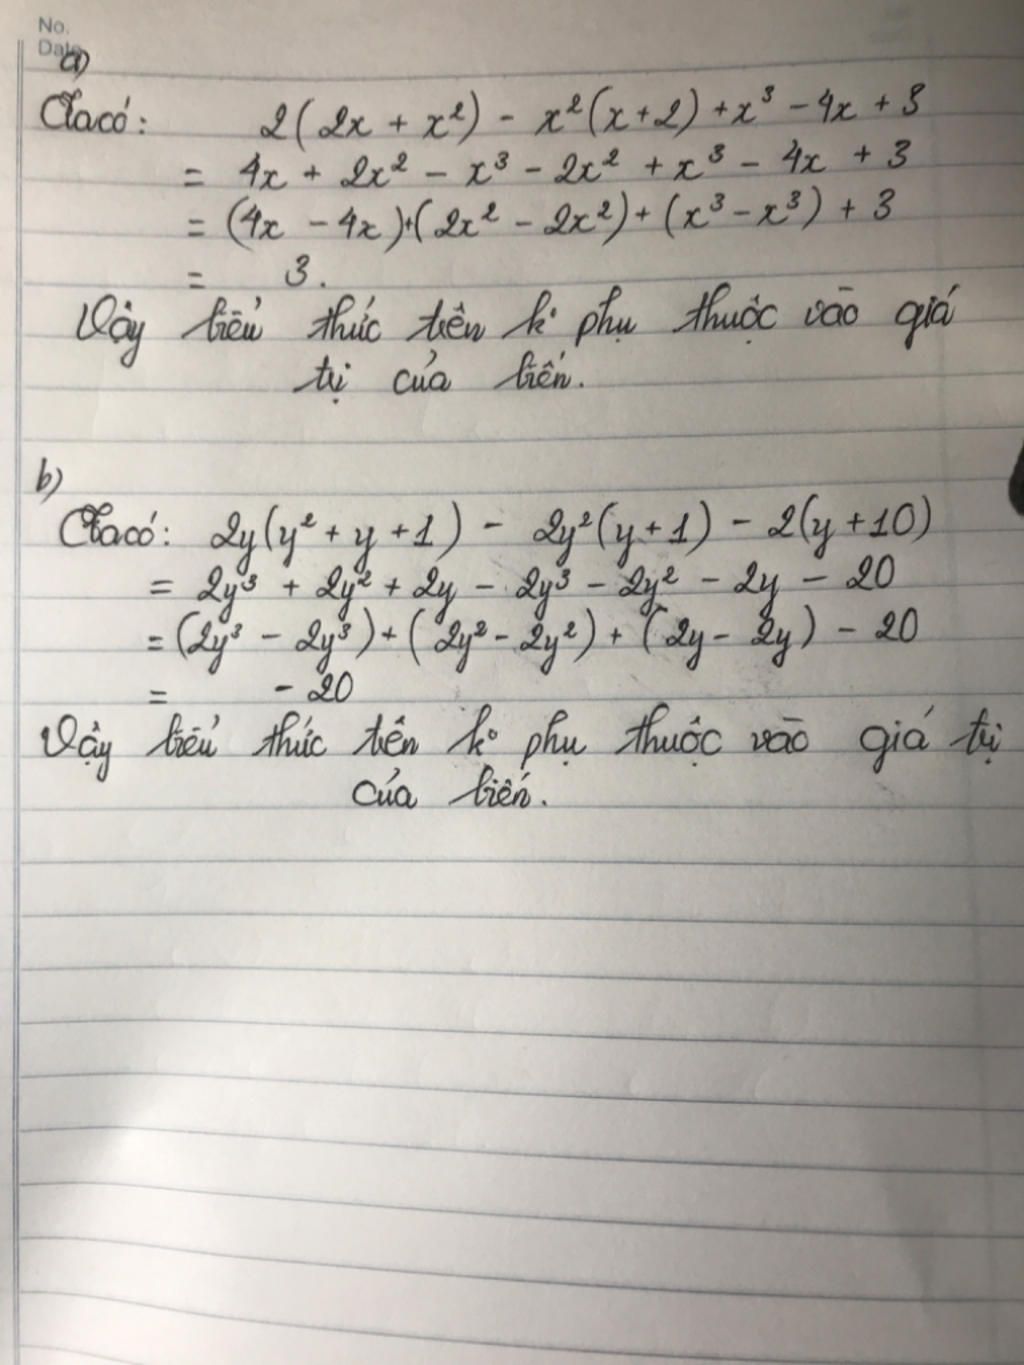 No.
Date
a)
Ta có: 2(2x + x²) - x²(x+2) + x³ - 4x + 3
= 4x + 2x² - x³ - 2x² + x³ - 4x + 3
= (4x - 4x)+(2x² - 2x²)+(x³-x³) + 3
= 3.
Vậy biểu thức trên k° phụ thuộc vào giá
trị của biến.
b)
Ta có: 2y(y² + y + 1) - 2y²(y+1) - 2(y+10)
= 2y³ + 2y² + 2y - 2y³ - 2y² - 2y - 20
= (2y³ - 2y³)+(2y²-2y²)+(2y-2y) - 20
= -20
Vậy biểu thức trên k° phụ thuộc vào giá trị
của biến.